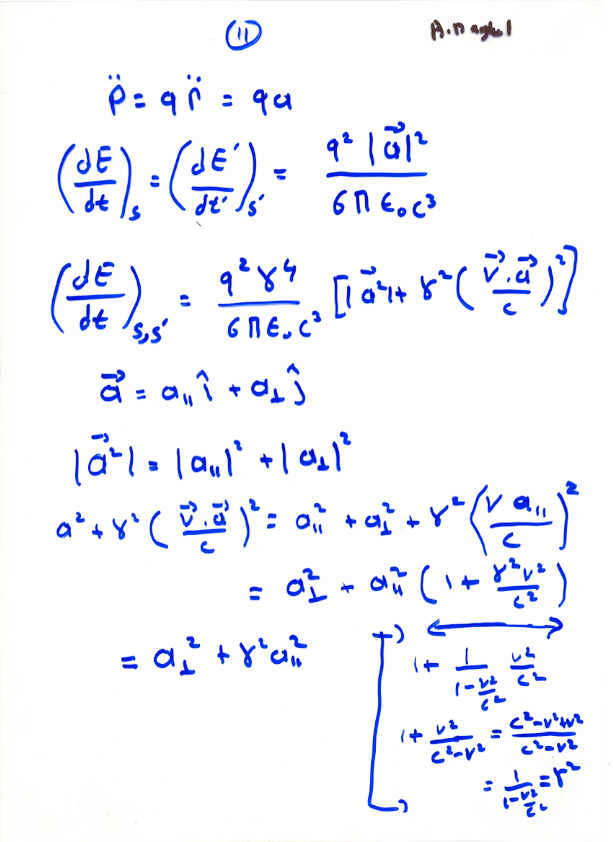 11
A. Naghol
p̈ = q r̈ = qa
(dE/dt)_S = (dE'/dt')_S' = q² |a⃗|² / 6π ε₀ c³
(dE/dt)_S,S' = q² γ⁴ / 6π ε₀ c³ [|a⃗²| + γ² (v⃗.a⃗ / c)²]
a⃗ = a∥ î + a⊥ ĵ
|a⃗²| = |a∥|² + |a⊥|²
a² + γ² (v⃗.a⃗ / c)² = a∥² + a⊥² + γ² (v a∥ / c)²
= a⊥² + a∥² (1 + γ²v²/c²)
= a⊥² + γ² a∥²
1 + 1/(1 - v²/c²) v²/c²
1 + v²/(c² - v²) = (c² - v² + v²)/(c² - v²)
= 1/(1 - v²/c²) = γ²